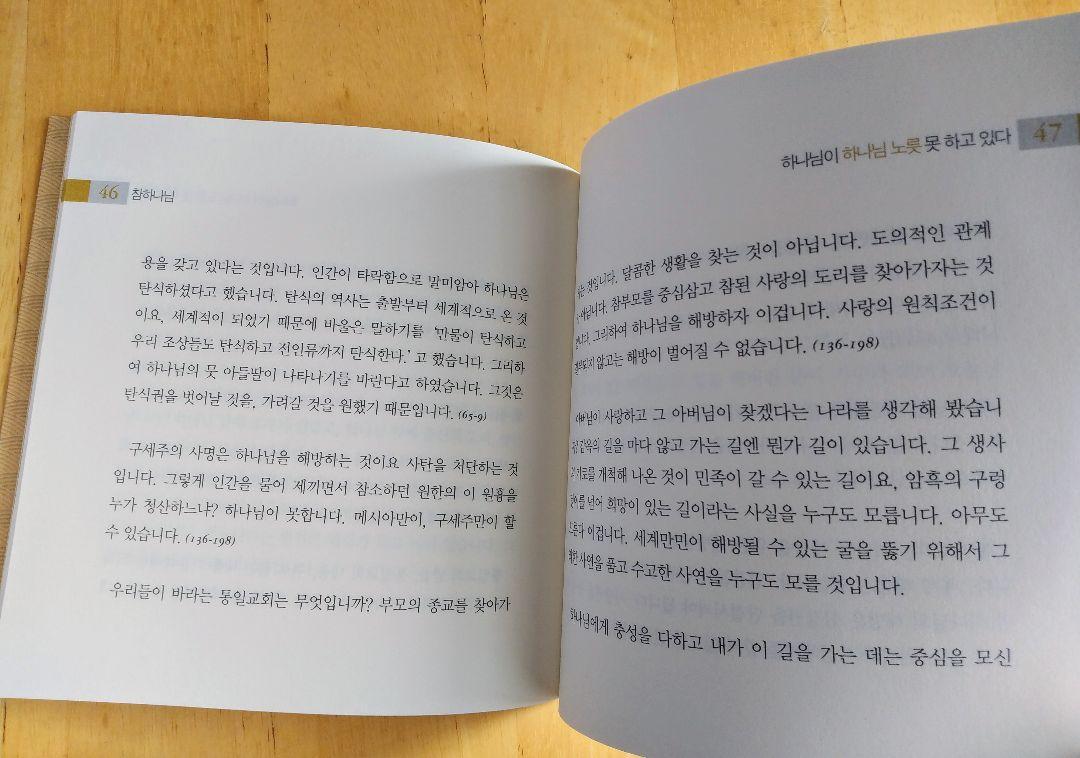 46 참하나님
용을 갖고 있다는 것입니다. 인간이 타락함으로 말미암아 하나님은
탄식하셨다고 했습니다. 탄식의 역사는 출발부터 세계적으로 온 것
이요, 세계적이 되었기 때문에 바울은 말하기를 '만물이 탄식하고
우리 조상들도 탄식하고 전인류까지 탄식한다.' 고 했습니다. 그리하
여 하나님의 뭇 아들딸이 나타나기를 바란다고 하였습니다. 그것은
탄식권을 벗어날 것을, 가려갈 것을 원했기 때문입니다. (65-9)
구세주의 사명은 하나님을 해방하는 것이요 사탄을 처단하는 것
입니다. 그렇게 인간을 물어 제끼면서 참소하던 원한의 이 원흉을
누가 청산하느냐? 하나님이 못합니다. 메시아만이, 구세주만이 할
수 있습니다. (136-198)
우리들이 바라는 통일교회는 무엇입니까? 부모의 종교를 찾아가
하나님이 하나님 노릇 못 하고 있다 47
는 것입니다. 달콤한 생활을 찾는 것이 아닙니다. 도의적인 관계
참부모를 중심삼고 참된 사랑의 도리를 찾아가자는 것
그리하여 하나님을 해방하자 이겁니다. 사랑의 원칙조건이
않고는 해방이 벌어질 수 없습니다. (136-198)
사랑하고 그 아버님이 찾겠다는 나라를 생각해 봤습니
길을 마다 않고 가는 길엔 뭔가 길이 있습니다. 그 생사
개척해 나온 것이 민족이 갈 수 있는 길이요, 암흑의 구렁
넘어 희망이 있는 길이라는 사실을 누구도 모릅니다. 아무도
이겁니다. 세계만민이 해방될 수 있는 굴을 뚫기 위해서 그
사연을 품고 수고한 사연을 누구도 모를 것입니다.
하나님에게 충성을 다하고 내가 이 길을 가는 데는 중심을 모신